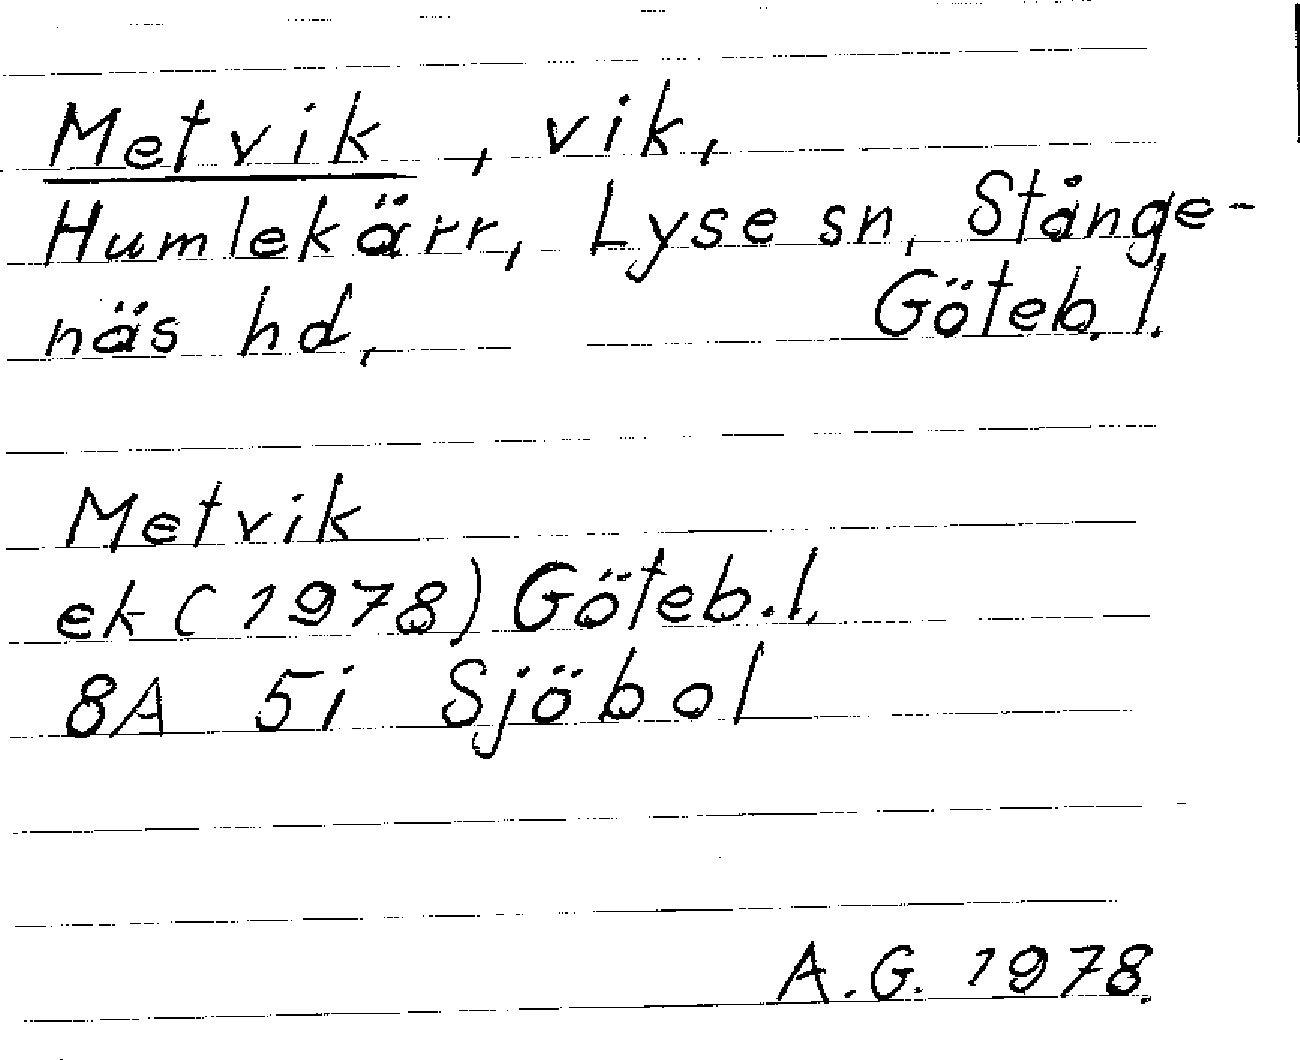 Metvik, vik,
Humlekärr, Lyse sn, Stånge-
näs hd, Göteb. l.
Metvik
ek (1978) Göteb. l.
8A 5i Sjöbol
A.G. 1978.